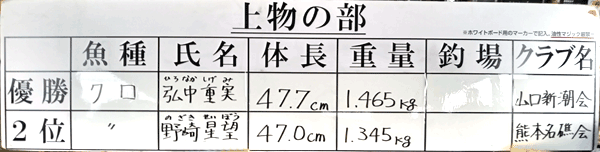 上物の部
※ホワイトボード用のマーカーで記入。油性マジック厳禁。
魚種 氏名 体長 重量 釣場 クラブ名
ひろなか しげ み
優勝 クロ 弘中重実 47.7cm 1.465kg 山口新潮会
の ざき せい ぼう
2位 〃 野崎星望 47.0cm 1.345kg 熊本名礁会